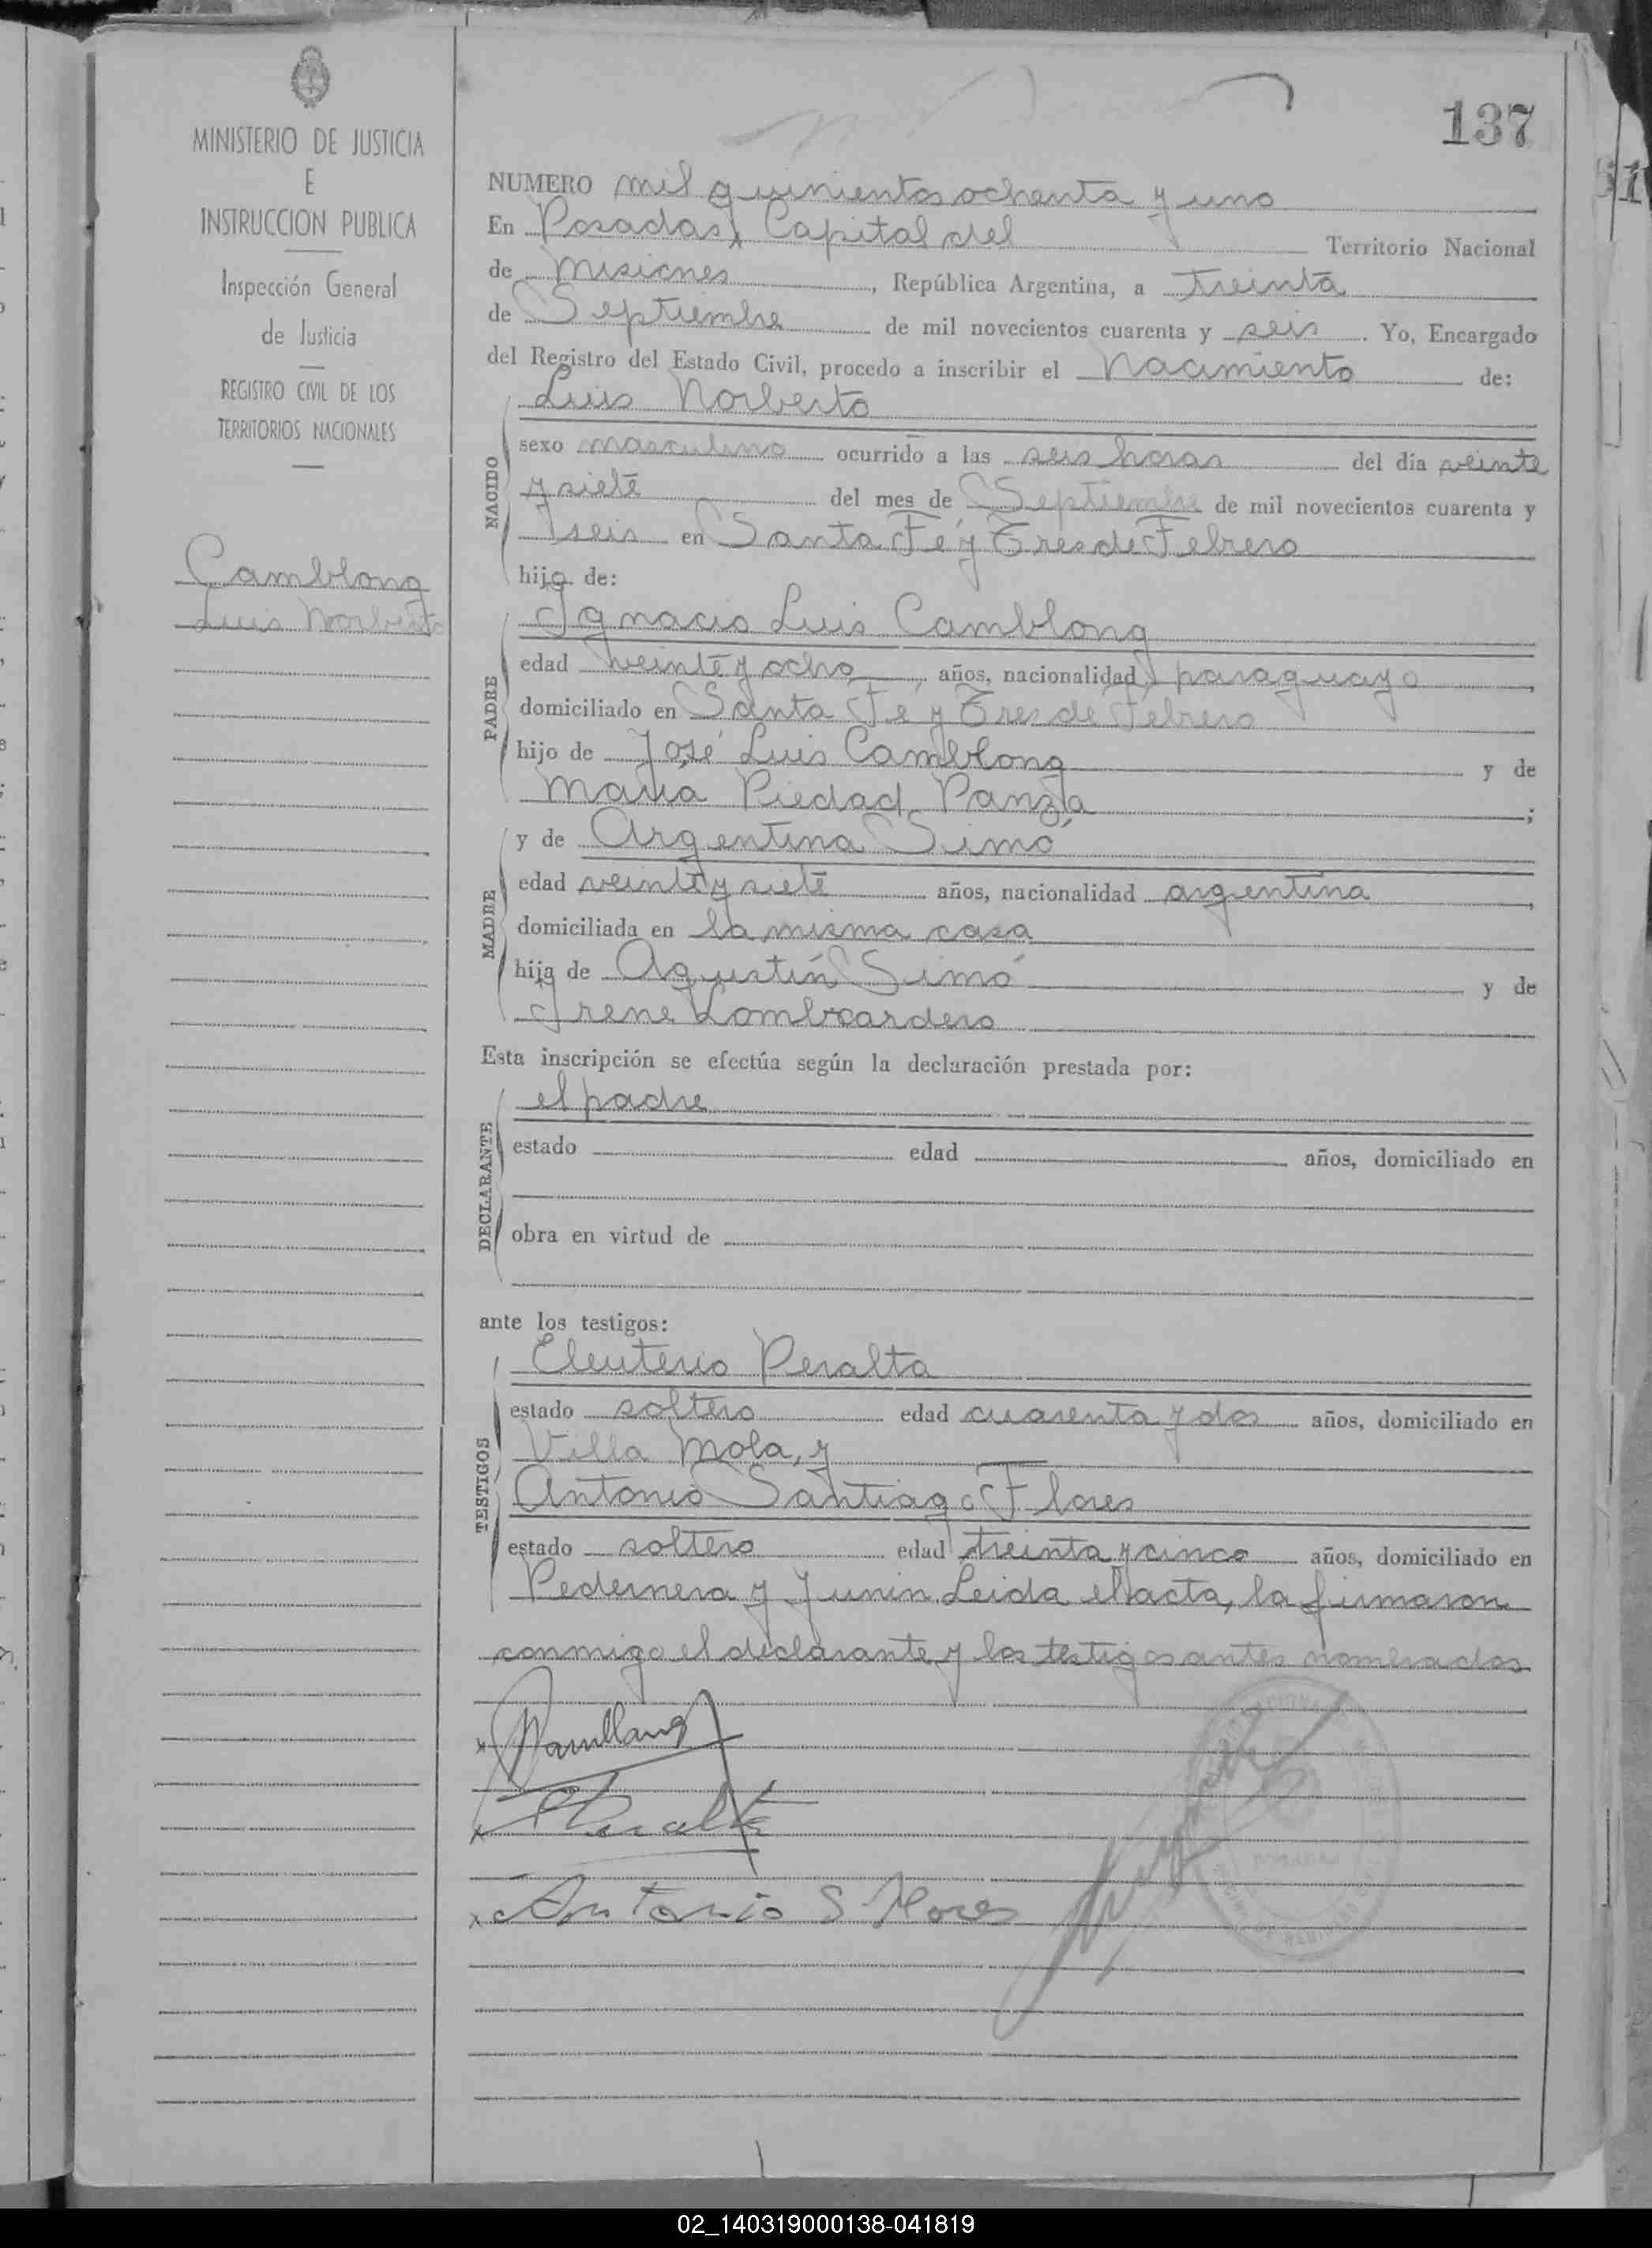 137
MINISTERIO DE JUSTICIA
E
INSTRUCCION PUBLICA
Inspección General
de Justicia
REGISTRO CIVIL DE LOS
TERRITORIOS NACIONALES
Camblong
Luis Norberto
NUMERO mil quinientos ochenta y uno
En Posadas, Capital del Territorio Nacional
de Misiones, República Argentina, a treinta
de Septiembre de mil novecientos cuarenta y seis. Yo, Encargado
del Registro del Estado Civil, procedo a inscribir el Nacimiento de:
NACIDO
Luis Norberto
sexo masculino ocurrido a las seis horas del día veinte
y siete del mes de Septiembre de mil novecientos cuarenta y
seis en Santa Fé y Tres de Febrero
hijo de:
PADRE
Ignacio Luis Camblong
edad veinte y ocho años, nacionalidad paraguayo,
domiciliado en Santa Fé y Tres de Febrero
hijo de José Luis Camblong y de
María Piedad Panza;
MADRE
y de Argentina Simó
edad veinte y siete años, nacionalidad argentina,
domiciliada en la misma casa
hija de Agustín Simó y de
Irene Lombardero
Esta inscripción se efectúa según la declaración prestada por:
DECLARANTE
el padre
estado edad años, domiciliado en
obra en virtud de
ante los testigos:
TESTIGOS
Eleuterio Peralta
estado soltero edad cuarenta y dos años, domiciliado en
Villa Mola, y
Antonio Santiago Flores
estado soltero edad treinta y cinco años, domiciliado en
Pedernera y Junin. Leida el acta, la firmaron
conmigo el declarante y los testigos antes nombrados
Camblong
Peralta
Antonio S. Flores
POSADAS
02_140319000138-041819